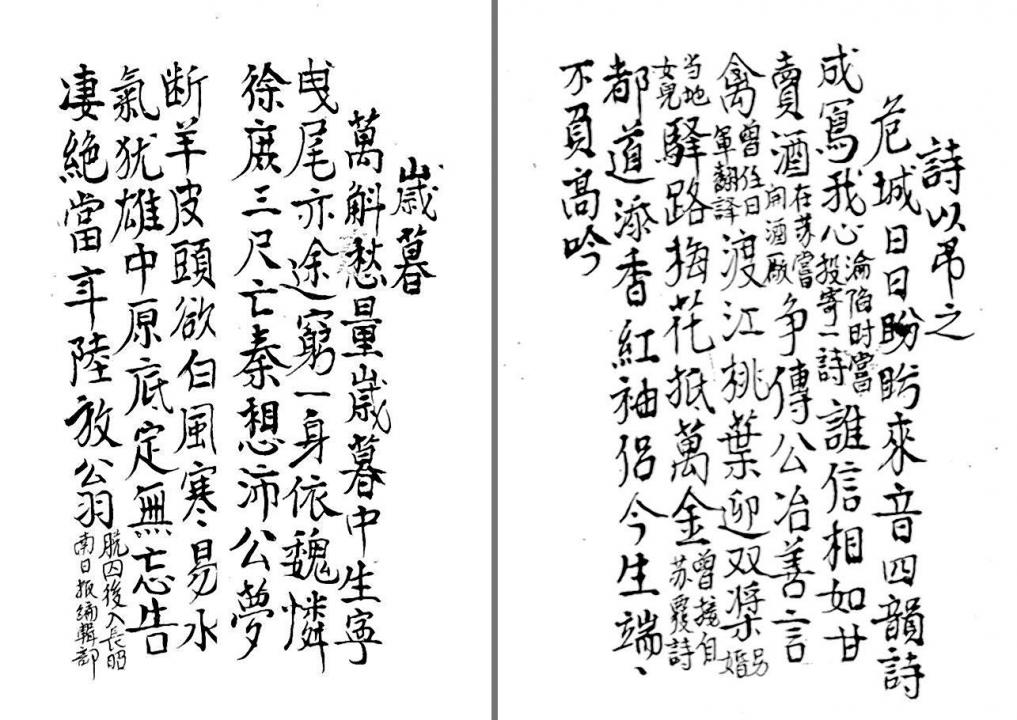 詩以吊之
危城日日盼盼來音四韻詩
成寫我心淪陷时嘗投寄一詩誰信相如甘
賣酒在苏嘗開酒厰争傳公冶善言
禽曾任日軍翻譯渡江桃葉迎双桨另婚
当地女兒驿路梅花抵萬金曾接自苏覆詩
都道添香紅袖侣今生端、
不負高吟
歲暮
萬斛愁量歲暮中生寧
曳尾亦途窮一身依魏憐
徐庶三尺亡秦想沛公夢
断羊皮頭欲白風寒易水
氣犹雄中原底定無忘告
凄絕當年陸放翁脱囚後入長昭南日报编輯部